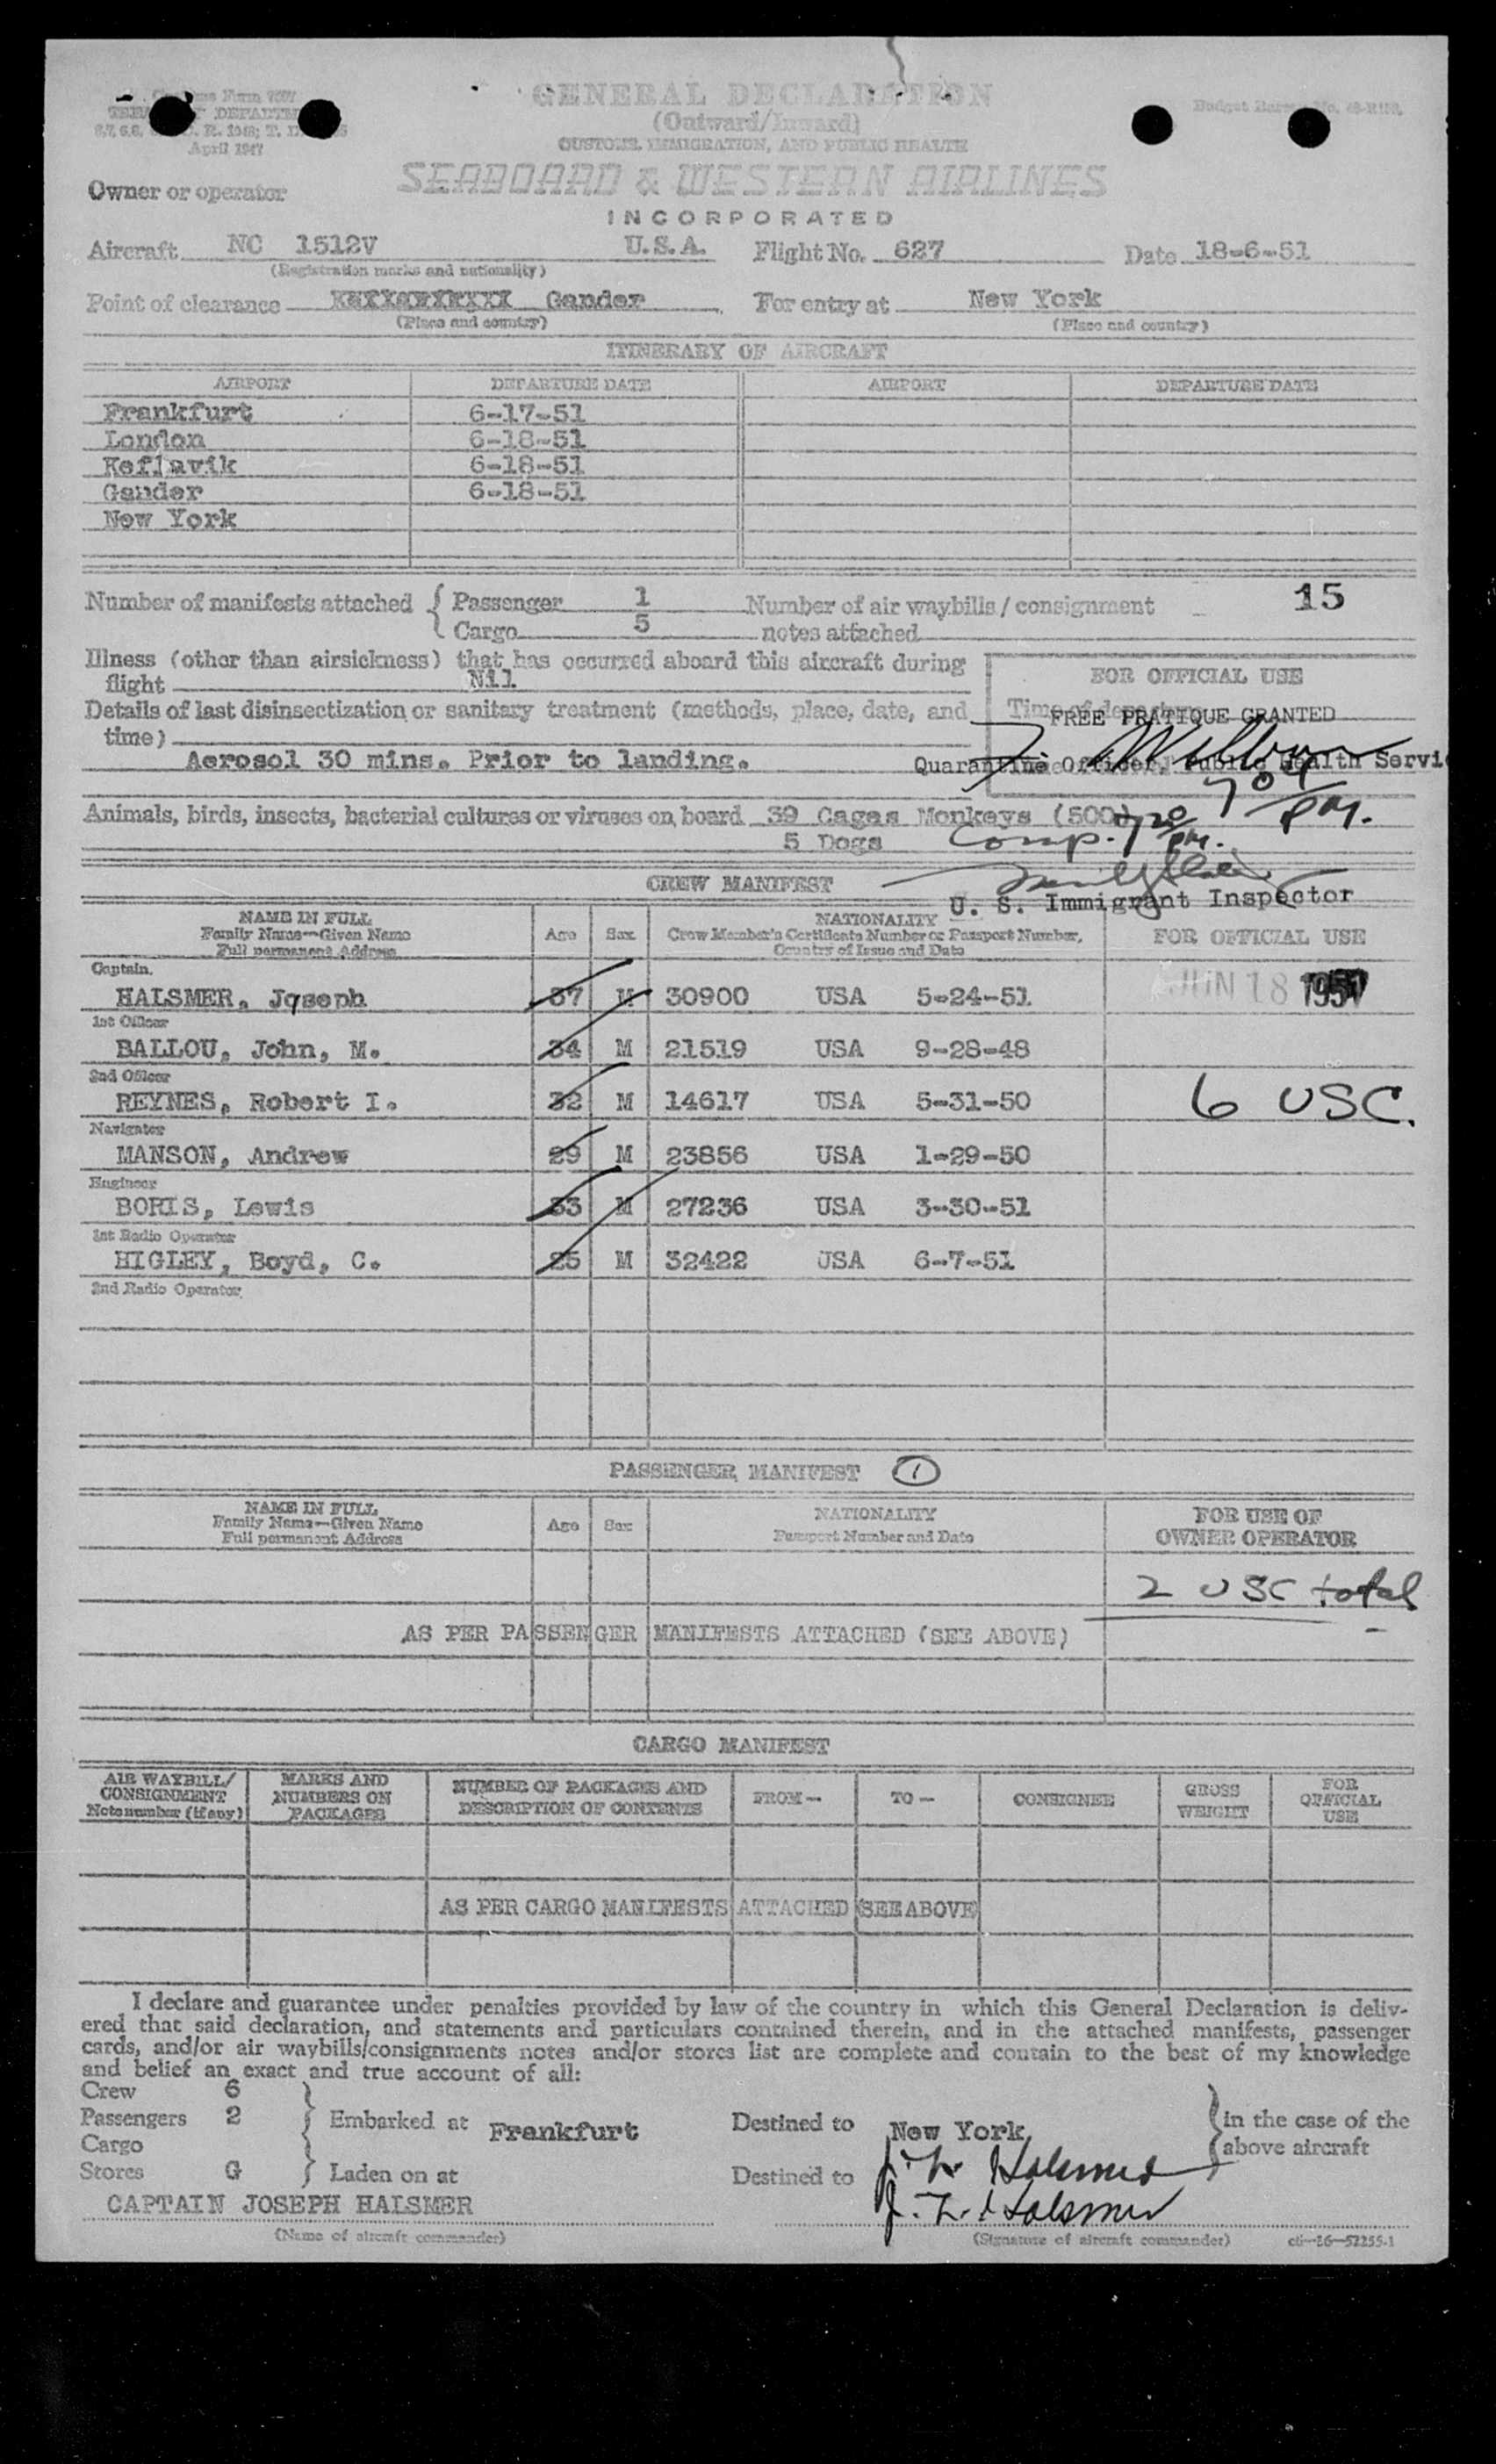 Customs Form 7507
GENERAL DECLARATION
(Outward/Inward)
April 1947
CUSTOMS, IMMIGRATION, AND PUBLIC HEALTH
Owner or operator SEABOARD & WESTERN AIRLINES
INCORPORATED
Aircraft NC 1512V U.S.A. Flight No. 627 Date 18-6-51
(Registration marks and nationality)
Point of clearance Gander For entry at New York
(Place and country) (Place and country)
ITINERARY OF AIRCRAFT
AIRPORT DEPARTURE DATE AIRPORT DEPARTURE DATE
Frankfurt 6-17-51
London 6-18-51
Keflavik 6-18-51
Gander 6-18-51
New York
Number of manifests attached { Passenger 1 Number of air waybills / consignment 15
Cargo 5 notes attached
Illness (other than airsickness) that has occurred aboard this aircraft during
flight Nil
FOR OFFICIAL USE
Details of last disinsectization or sanitary treatment (methods, place, date, and
time)
Time of departure
FREE PRATIQUE GRANTED
Aerosol 30 mins. Prior to landing.
Quarantine Officer, Public Health Servi
704 PM.
Animals, birds, insects, bacterial cultures or viruses on board 39 Cages Monkeys (500)
5 Dogs Comp. 720 PM.
CREW MANIFEST
U. S. Immigrant Inspector
NAME IN FULL
Family Name—Given Name
Full permanent Address
Age Sex
NATIONALITY
Crew Member's Certificate Number or Passport Number,
Country of Issue and Date
FOR OFFICIAL USE
Captain.
HALSMER, Joseph 37 M 30900 USA 5-24-51 JUN 18 1951
1st Officer
BALLOU, John, M. 34 M 21519 USA 9-28-48
2nd Officer
REYNES, Robert I. 32 M 14617 USA 5-31-50 6 USC.
Navigator
MANSON, Andrew 29 M 23856 USA 1-29-50
Engineer
BORIS, Lewis 33 M 27236 USA 3-30-51
1st Radio Operator
HIGLEY, Boyd, C. 25 M 32422 USA 6-7-51
2nd Radio Operator
PASSENGER MANIFEST 1
NAME IN FULL
Family Name—Given Name
Full permanent Address
Age Sex
NATIONALITY
Passport Number and Date
FOR USE OF
OWNER OPERATOR
2 USC total
AS PER PASSENGER MANIFESTS ATTACHED (SEE ABOVE)
CARGO MANIFEST
AIR WAYBILL/
CONSIGNMENT
Note number (if any)
MARKS AND
NUMBERS ON
PACKAGES
NUMBER OF PACKAGES AND
DESCRIPTION OF CONTENTS
FROM—
TO—
CONSIGNEE
GROSS
WEIGHT
FOR
OFFICIAL
USE
AS PER CARGO MANIFESTS ATTACHED SEE ABOVE
I declare and guarantee under penalties provided by law of the country in which this General Declaration is deliv-
ered that said declaration, and statements and particulars contained therein, and in the attached manifests, passenger
cards, and/or air waybills/consignments notes and/or stores list are complete and contain to the best of my knowledge
and belief an exact and true account of all:
Crew 6
Passengers 2 } Embarked at Frankfurt Destined to New York } in the case of the
Cargo above aircraft
Stores G } Laden on at Destined to J. L. Halsmer
CAPTAIN JOSEPH HALSMER J. L. Halsmer
(Name of aircraft commander) (Signature of aircraft commander) c6—16—52255-1